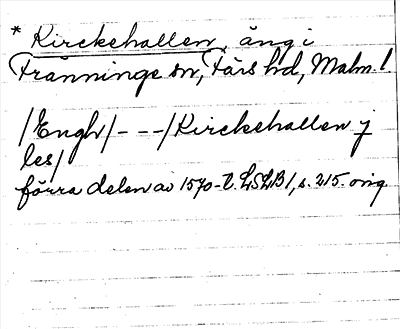 * Kirckehallen, äng i
Tranninge sn, Färs hd, Malm. l.
/Engh/ - - - /Kirckehallen j
les/
förra delen av 1570-t. LSLB 1, s. 215. orig.